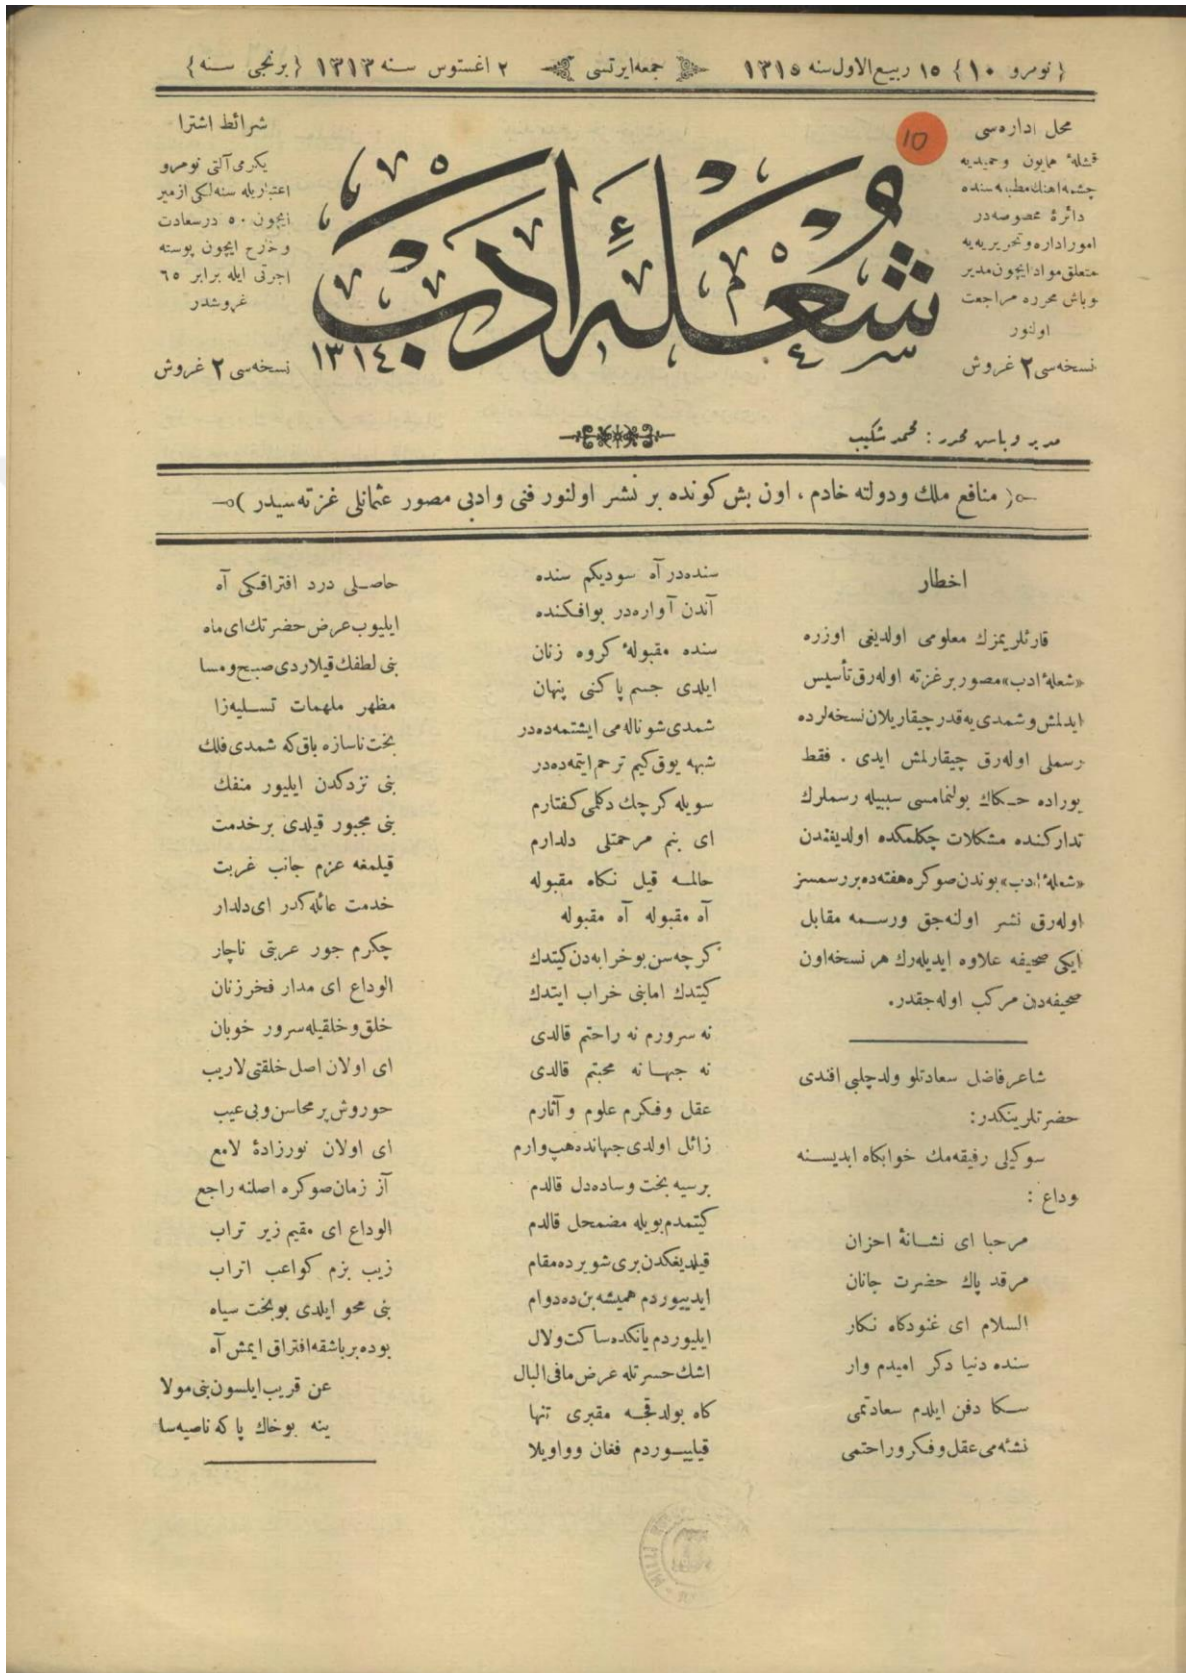 { نومرو ١٠ } ١٥ ربيع الاول سنه ١٣١٥ جمعه ايرتسى ٢ اغستوس سنه ١٣١٣ { برنجى سنه }
محل اداره سى
قشلهٔ همايون وحميديه
چشمه اهنك مطبعه سنده
دائرهٔ مخصوصه در
امور اداره وتحريريه يه
متعلق مواد ايچون مدير
وباش محرره مراجعت
اولنور
نسخه سى ٢ غروش
10
شُعلهٔ ادب
١٣١٤
شرائط اشترا
يكرمى آلتى نومرو
اعتباريله سنه لكى ازمير
ايچون ٥٠ درسعادت
وخارج ايچون پوسته
اجرتى ايله برابر ٦٥
غروشدر
نسخه سى ٢ غروش
مدير وباش محرر : محمد شكيب
( منافع ملك ودولته خادم ، اون بش كونده بر نشر اولنور فنى وادبى مصور عثمانلى غزته سيدر )
اخطار
قارئلريمزك معلومى اولديغى اوزره
«شعلهٔ ادب» مصور بر غزته اوله رق تأسيس
ايدلمش وشمدى يه قدر چيقاريلان نسخه لرده
رسملى اوله رق چيقارلمش ايدى . فقط
بوراده حكاك بولنمامسى سببيله رسملرك
تداركنده مشكلات چكلمكده اولديغندن
«شعلهٔ ادب» بوندن صوكره هفته ده بر رسمسز
اوله رق نشر اولنه جق ورسمه مقابل
ايكى صحيفه علاوه ايديله رك هر نسخه اون
صحيفه دن مركب اوله جقدر.
شاعر فاضل سعادتلو ولد چلبى افندى
حضرتلرينكدر:
سوكيلى رفيقه مك خوابكاه ابديسنه
وداع :
مرحبا اى نشانهٔ احزان
مرقد پاك حضرت جانان
السلام اى غنودكاه نكار
سنده دنيا دكر اميدم وار
سكا دفن ايلدم سعادتمى
نشئه مى عقل وفكر وراحتمى
سنده در آه سوديكم سنده
آندن آواره در بو افكنده
سنده مقبولهٔ كروه زنان
ايلدى جسم پاكنى پنهان
شمدى شو ناله مى ايشتمه ده در
شبهه يوق كيم ترحم ايتمه ده در
سويله كرچك دكلمى كفتارم
اى بنم مرحمتلى دلدارم
حالمه قيل نكاه مقبوله
آه مقبوله آه مقبوله
كرچه سن بو خرابه دن كيتدك
كيتدك امابنى خراب ايتدك
نه سرورم نه راحتم قالدى
نه جهانه محبتم قالدى
عقل وفكرم علوم و آثارم
زائل اولدى جهانده هپ وارم
بر سيه بخت وساده دل قالدم
كيتمدم بويله مضمحل قالدم
قيلديغكدن برى شو يرده مقام
ايديیوردم هميشه بن ده دوام
ايليوردم يانكده ساكت ولال
اشك حسرتله عرض مافى البال
كاه بولدقجه مقبرى تنها
قيلييوردم فغان وواويلا
حاصلى درد افتراقكى آه
ايليوب عرض حضرتك اى ماه
بنى لطفك قيلاردى صبح ومسا
مظهر ملهمات تسليه زا
بخت ناسازه باق كه شمدى فلك
بنى نزدكدن ايليور منفك
بنى مجبور قيلدى بر خدمت
قيلمغه عزم جانب غربت
خدمت عائله كدر اى دلدار
چكرم جور غربتى ناچار
الوداع اى مدار فخر زنان
خلق وخلقيله سرور خوبان
اى اولان اصل خلقتى لاريب
حوروش پر محاسن وبى عيب
اى اولان نورزادهٔ لامع
آز زمان صوكره اصلنه راجع
الوداع اى مقيم زير تراب
زيب بزم كواعب اتراب
بنى محو ايلدى بو بخت سياه
بوده بر باشقه افتراق ايمش آه
عن قريب ايلسون بنى مولا
ينه بو خاك پاكه ناصيه سا